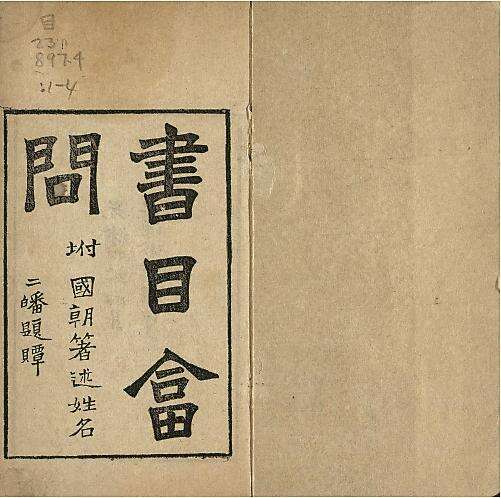 目
897.4
:1-4
書目畣
問
坿國朝箸述姓名
二皤題贉